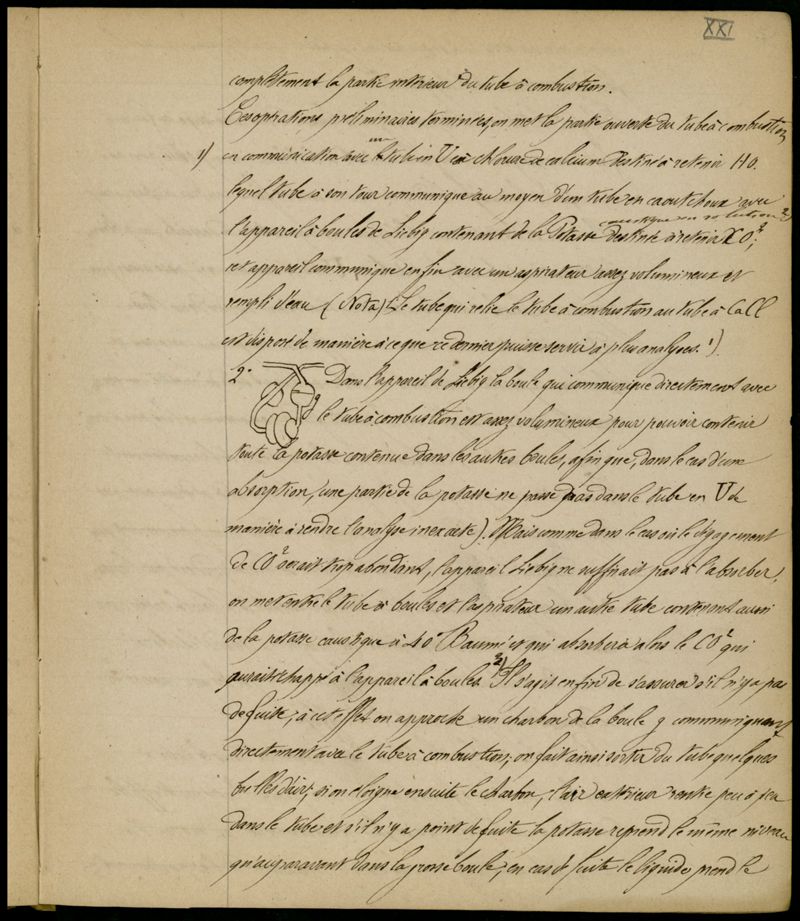 XXI
complètement la partie intérieur du tube à combustion.
Ces opérations préliminaires terminées, on met la partie ouverte du tube à combustion
1) en communication avec un tube en U à chlorure de calcium destiné à retenir HO.
lequel tube à son tour communique au moyen d'un tube en caoutchouc avec
caustique en solution 2)
l'appareil à boules de Liebig contenant de la Potasse destinée à retenir CO²;
cet appareil communique enfin avec un aspirateur assez volumineux et
rempli d'eau (Nota) Le tube qui relie le tube à combustion au tube à CaCl
est disposé de manière à ce que ce dernier puisse servir à plus analyses. 1)
2° Dans l'appareil de Liebig la boule qui communique directement avec
le tube à combustion est assez volumineux pour pouvoir contenir
toute la potasse contenue dans les autres boules, afin que, dans le cas d'une
absorption, une partie de la potasse ne passe pas dans le tube en U de
manière à rendre l'analyse inexacte). Mais comme dans le cas où le dégagement
de CO² serait trop abondant, l'appareil Liebig ne suffirait pas à l'absorber,
on met entre le tube à boules et l'aspirateur un autre tube contenant aussi
de la potasse caustique à 40° Baumé et qui absorbera alors le CO² qui
aurait échappé à l'appareil à boules. 2) Il s'agit enfin de s'assurer s'il n'y a pas
de fuite; à cet effet on approche un charbon de la boule g communiquant
directement avec le tube à combustion; on fait ainsi sortir du tube quelques
bulles d'air; si on éloigne ensuite le charbon, l'air extérieur rentre peu à peu
dans le tube et s'il n'y a point de fuite la potasse reprend le même niveau
qu'auparavant dans la grosse boule; en cas de fuite le liquide prend le